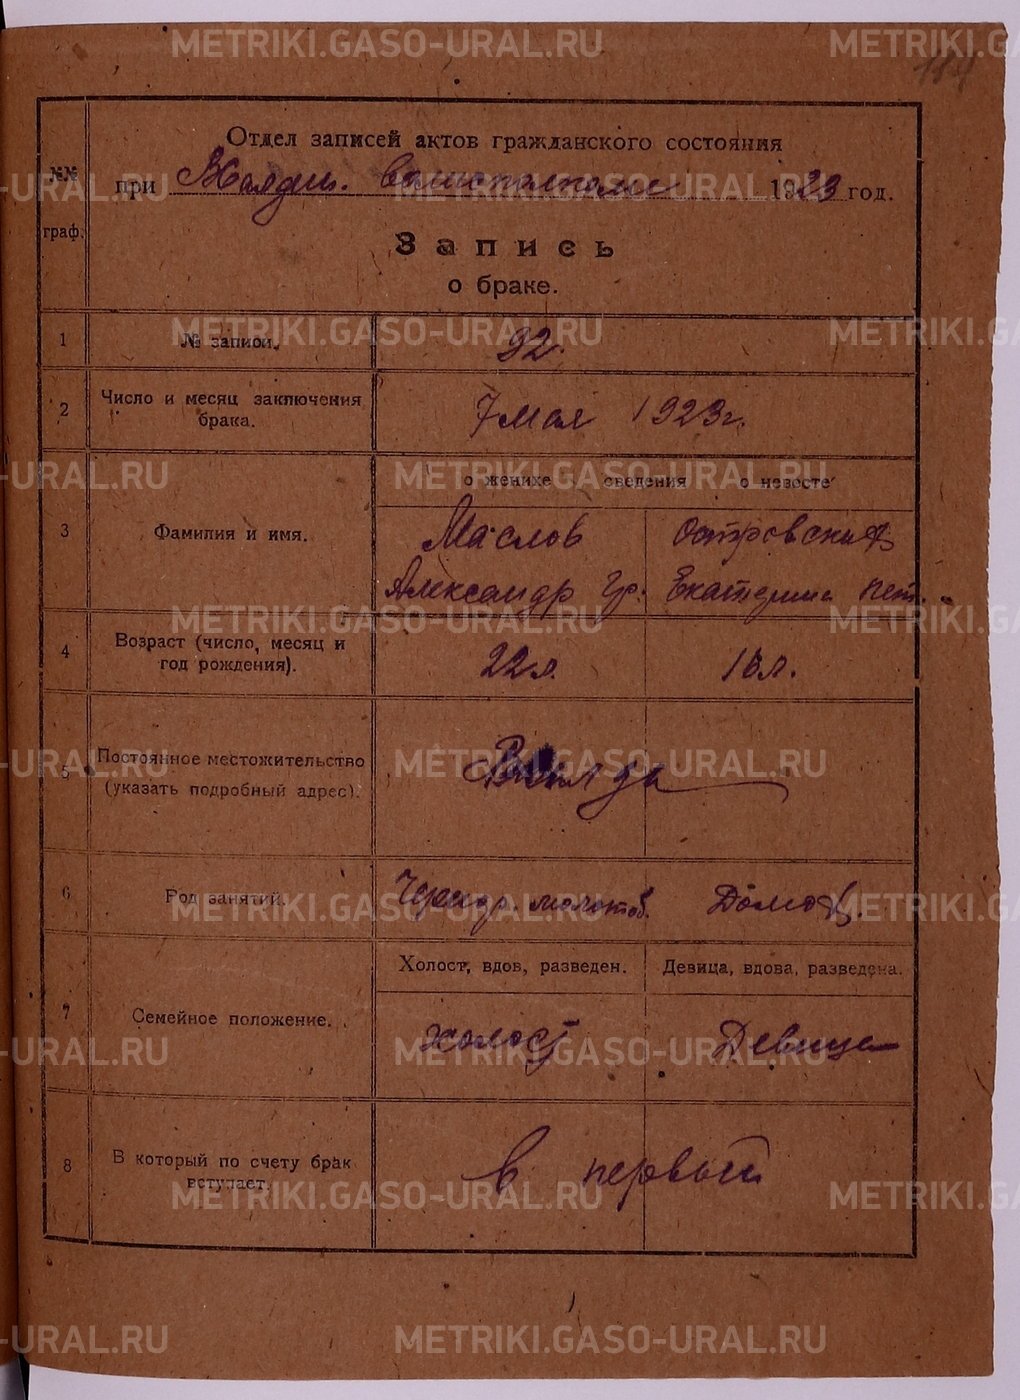 METRIKI.GASO-URAL.RU
Отдел записей актов гражданского состояния
при волисполкоме 1923 год.
№№
граф.
Запись
о браке.
1 № записи. 92.
2 Число и месяц заключения
брака. 7 мая 1923 г.
о женихе сведения о невесте
3 Фамилия и имя.
Маслов
Александр Гр. Екатерина Пет.
4 Возраст (число, месяц и
год рождения). 22 л. 18 л.
5 Постоянное местожительство
(указать подробный адрес).
6 Род занятий.
Холост, вдов, разведен. Девица, вдова, разведена.
7 Семейное положение. холост Девица
8 В который по счету брак
вступает. в первый